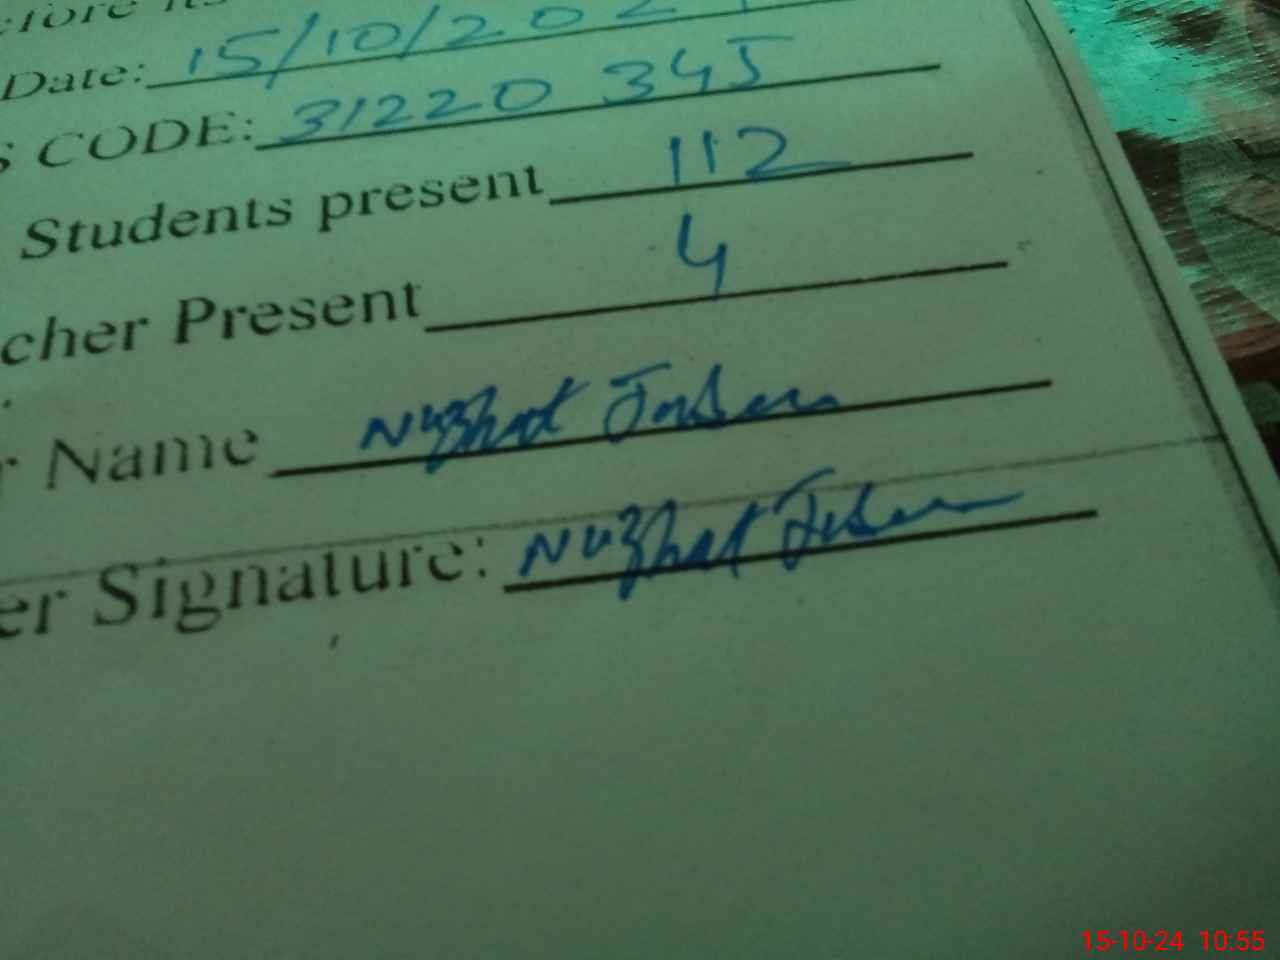 Date: 15/10/202
CODE: 31220 345
Students present 112
cher Present 4
Name Nuzhat
er Signature: Nuzhat
15-10-24 10:55